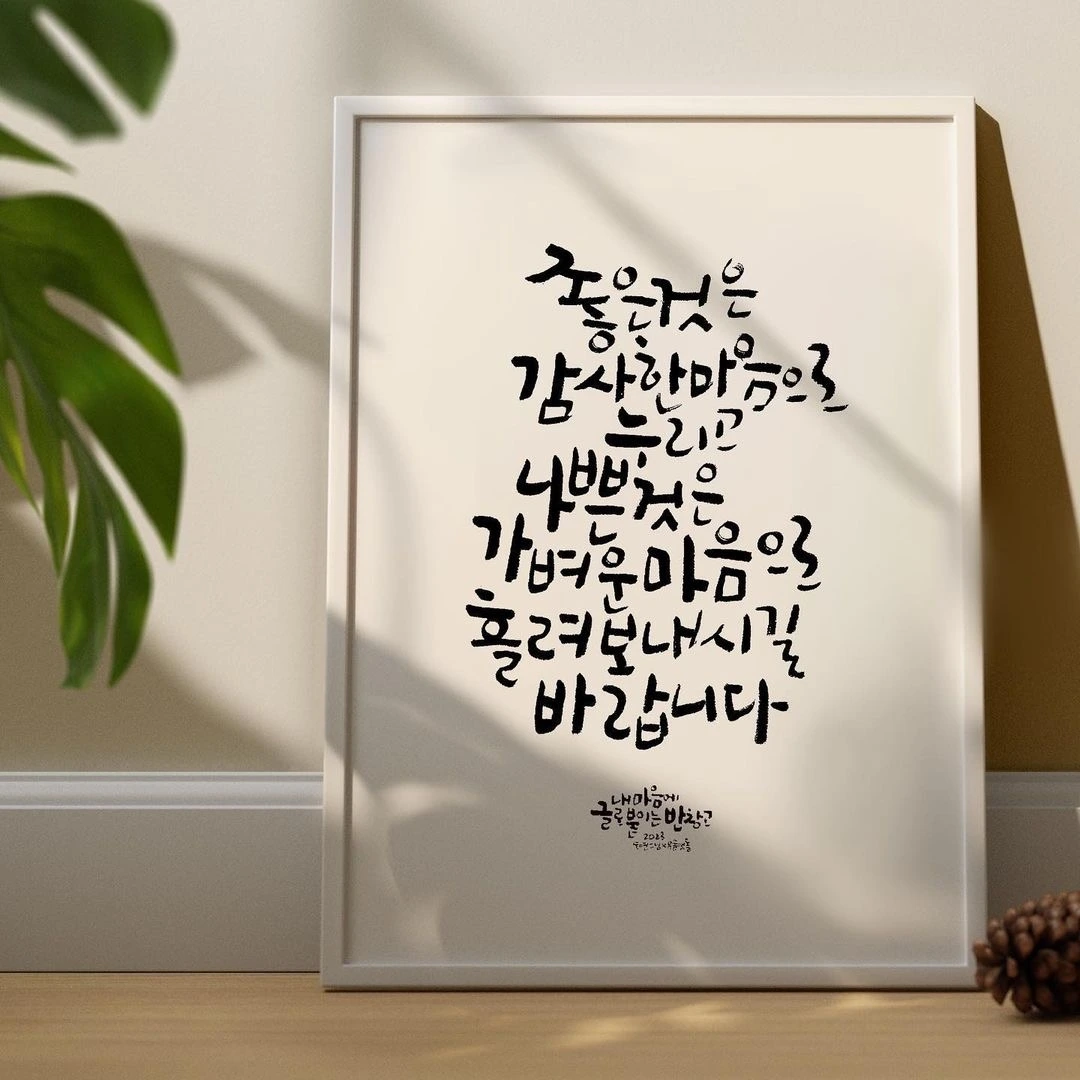 좋은것은
감사한마음으로
누리고
나쁜것은
가벼운마음으로
흘려보내시길
바랍니다
내마음에
글로붙이는반창고
2023